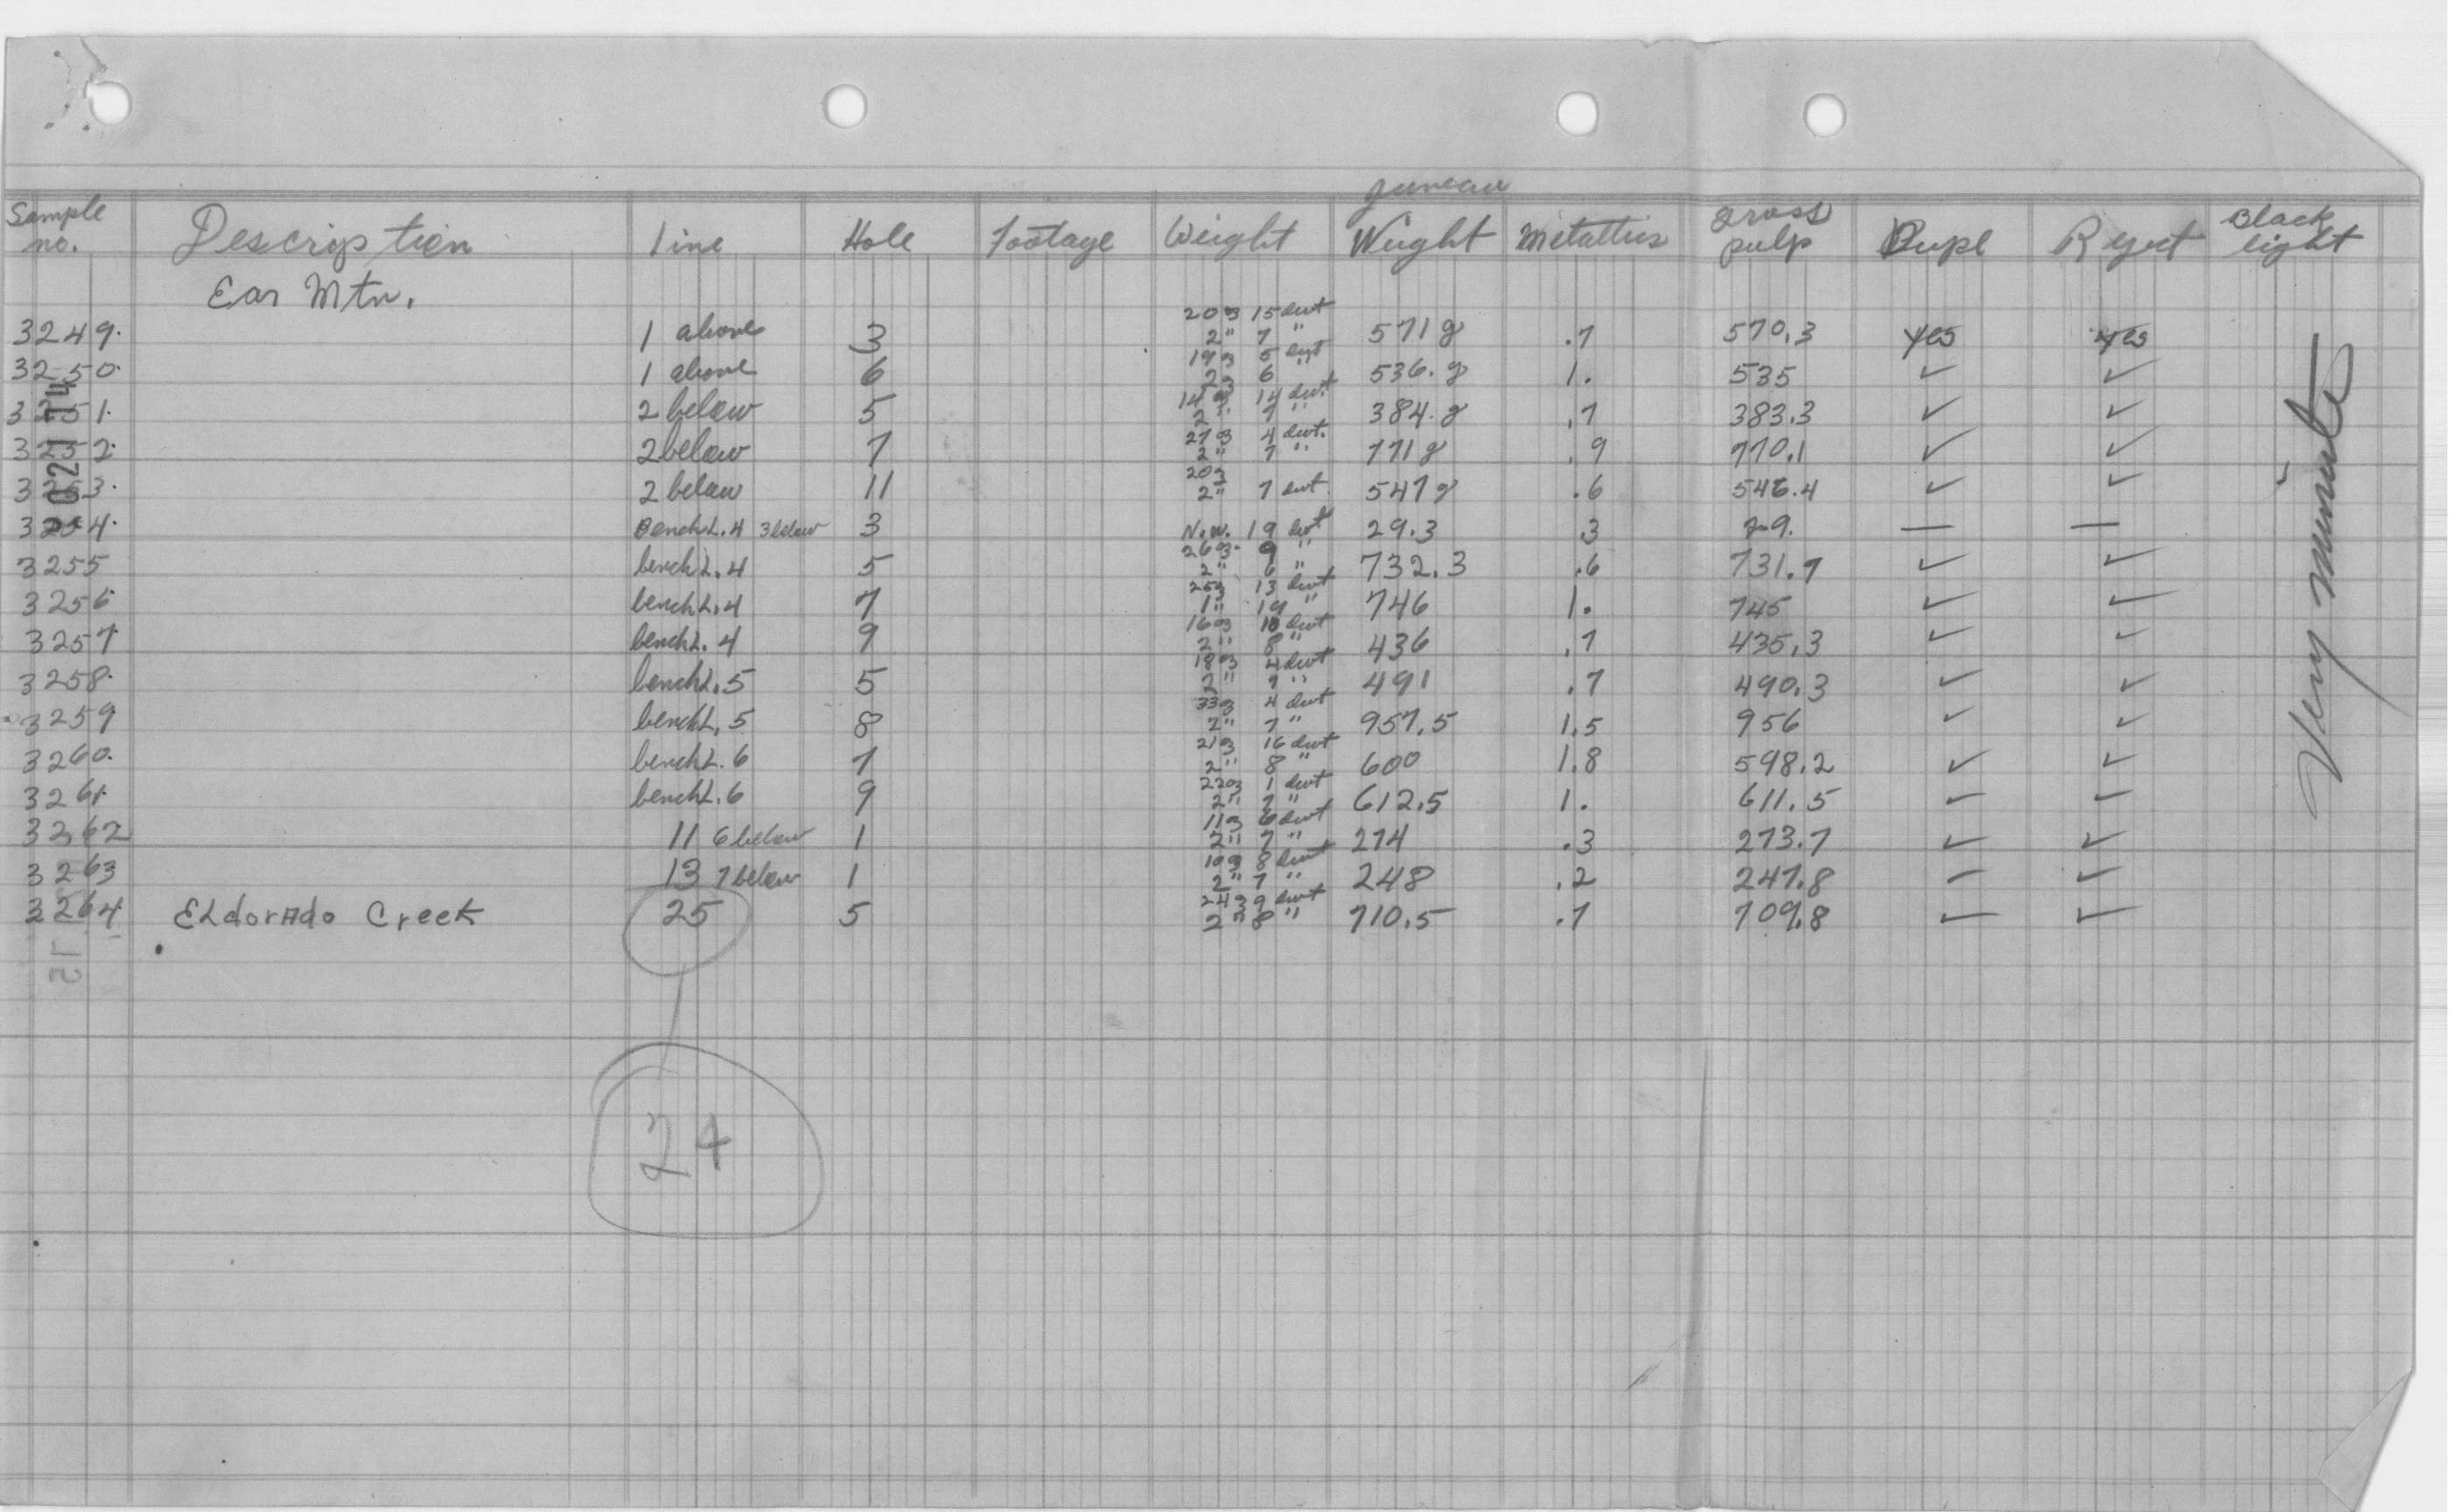 Juneau
Sample no. Description line Hole footage Weight Weight Metallics gross pulp Dupl Reject Black light
Ear Mtn.
20 3 15 dwt
3249. 1 above 3 2" 7 " 571 g .7 570.3 yes yes
19 3 5 dwt
3250. 1 above 6 2 3 6 " 536. g 1. 535 ✓ ✓
14 3 14 dwt.
3251. 2 below 5 2 " 7 " 384. g .7 383.3 ✓ ✓
27 3 4 dwt.
3252. 2 below 7 2" 7 " 771 g .9 770.1 ✓ ✓
20 3
3253. 2 below 11 2" 7 dwt 547 g .6 546.4 ✓ ✓
3254. Bench L. 4 3 below 3 N.W. 19 dwt 29.3 3 29. — —
26 3. 9 "
3255 bench L. 4 5 2" 6 " 732.3 .6 731.7 ✓ ✓
25 3 13 dwt
3256 bench L. 4 7 1" 19 " 746 1. 745 ✓ ✓
16 3 dwt
3257 bench L. 4 9 2" 8 " 436 .7 435.3 ✓ ✓
18 3 4 dwt
3258. bench L. 5 5 2" 9 " 491 .7 490.3 ✓ ✓
33 3 4 dwt
3259 bench L. 5 8 2" 7 " 957.5 1.5 956 ✓ ✓
21 3 16 dwt
3260. bench L. 6 7 2" 8 " 600 1.8 598.2 ✓ ✓
22 3 1 dwt
3261. bench L. 6 9 2" 7 " 612.5 1. 611.5 ✓ ✓
11 3 6 dwt
3262 11 6 below 1 2" 7 " 274 .3 273.7 ✓ ✓
10 3 8 dwt
3263 13 7 below 1 2" 7 " 248 .2 247.8 ✓ ✓
24 3 9 dwt
3264 ELdorAdo Creek 25 5 2" 8 " 710.5 .7 709.8 ✓ ✓
24
Very minute